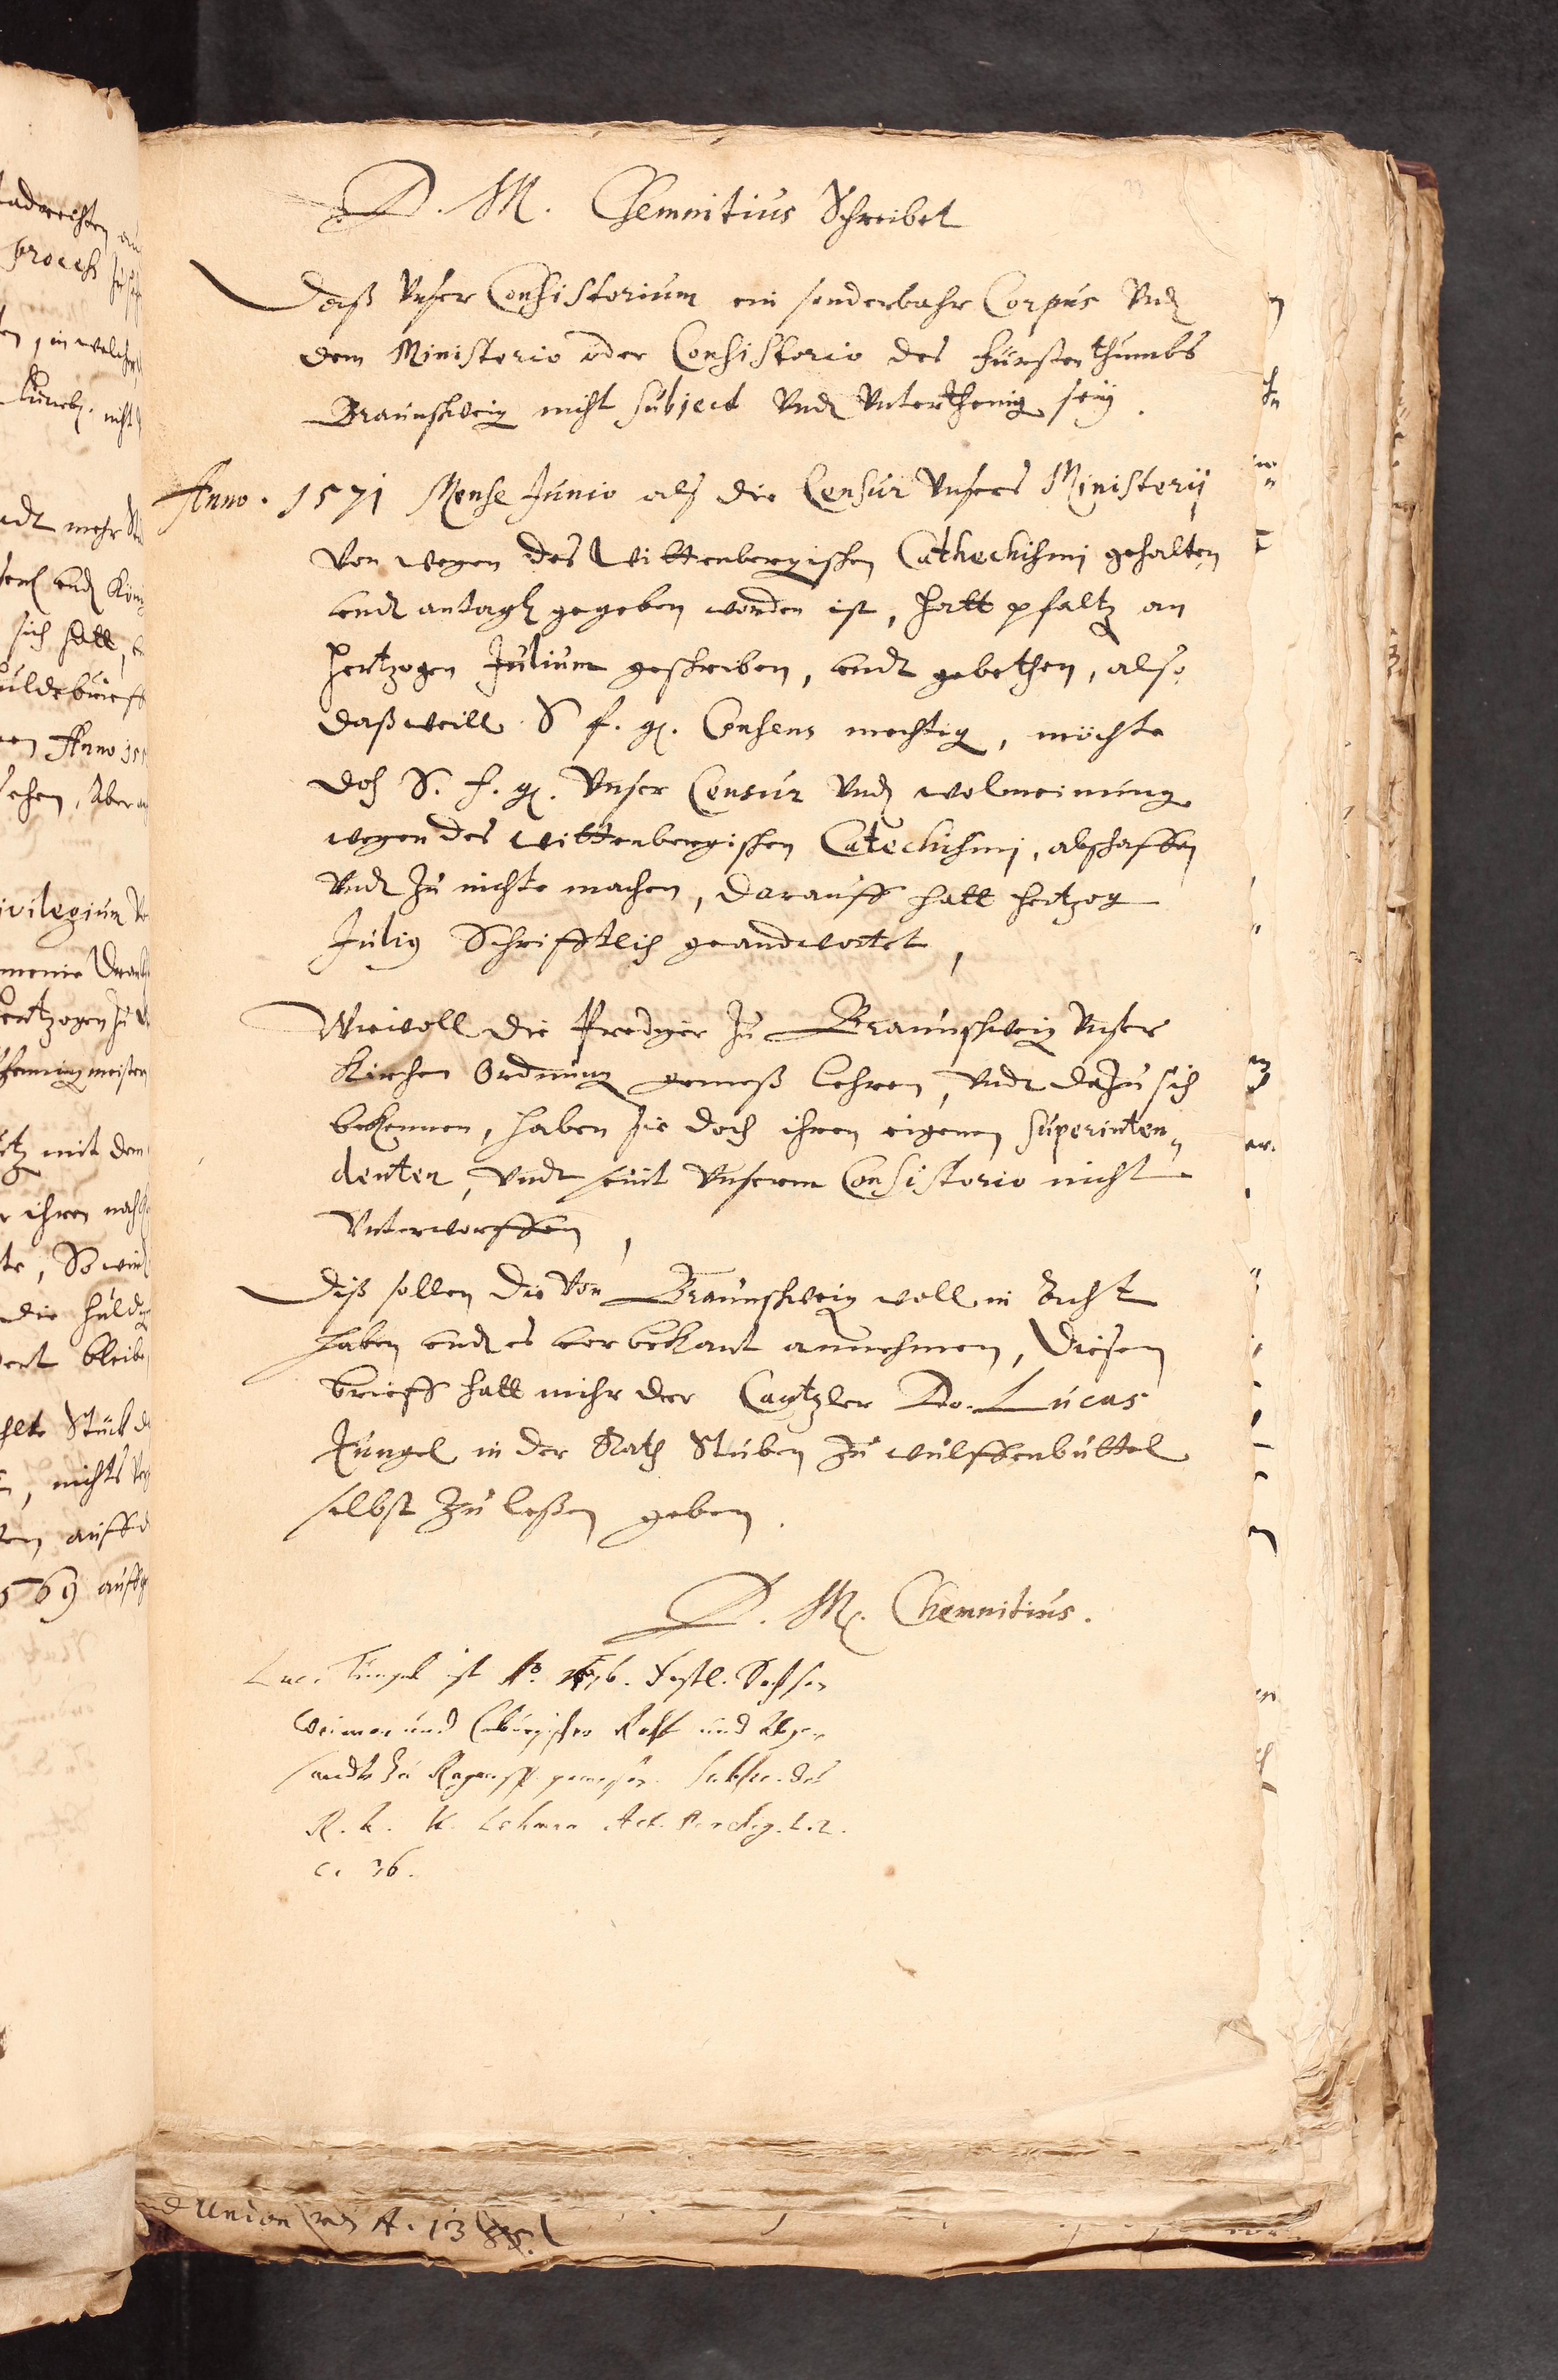 D. M. Chemnitius Schreibet
Daß Vnser Consistorium ein sonderbahr Corpus Vnd
dem Ministerio oder Consistorio des Fürstenthumbs
Braunschweig nicht subject Vndt Vnterthenig sey.
Anno. 1571 Mense Junio alß die Censur Vnsers Ministerij
Von wegen des Wittenbergischen Cathechismj gehalten
vndt antagh gegeben worden ist, hatt pfaltz an
Hertzogen Julium geschrieben, vndt gebethen, also
daß weill S f. g. Consens mechtig, möchte
doch S. f. g. Vnser Censur Vnd wolmeinung
wegen des wittenbergischen Catechismj, abschaffen
Vndt zu nichte machen, darauff hatt Hertzog
Julig Schrifftlich geandwortet,
Wiewoll die Prediger zu Braunschweig Vnser
Kirchen Ordnung gemeß lehren, Vndt dazu sich
bekennen, haben sie doch ihren eigenen Superinten„
denten, Vndt seint Vnserm Consistorio nicht
Vnterworffen,
Diß sollen die Von Braunschweig woll in Acht
haben vndt es vor bekant annehmen, Diesen
brieff hatt mihr der Cantzler Do. Lucas
Tungel in der Rath Stuben zu wulffenbuttel
selbst zu leßen geben.
D. M. Chemnitius.
Luc. Tungel ist Ao. Sachsen
Weimar und Coburgischer Raht und Abge-
sandte zu Regensp. gewesen. des
R. Lehman Act. c. 2.
c. 36.
Union A. 13